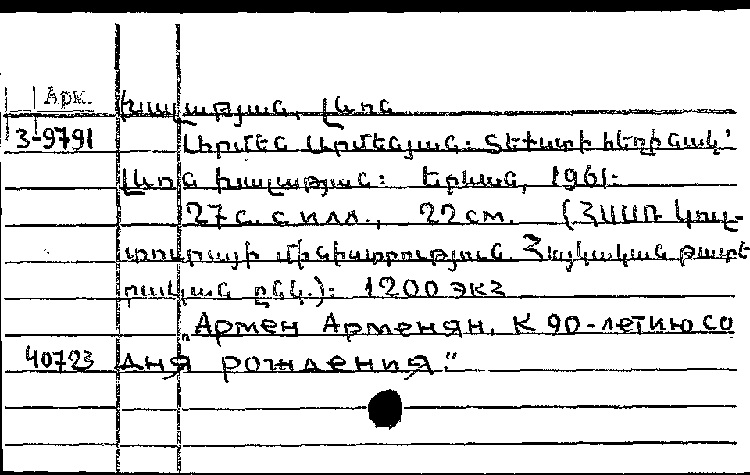 Арк.
Խալաթյան, Լևոն
3-9791 Արմեն Արմենյան: Տեքստի հեղինակ՝
Լևոն Խալաթյան: Երևան, 1961:
27 с. с илл., 22 см. (ՀՍՍՌ Կուլ-
տուրայի մինիստրություն. Հայկական թատե
րական ընկ.): 1200 экз
„Армен Арменян. К 90-летию со
40723 дня рождения."